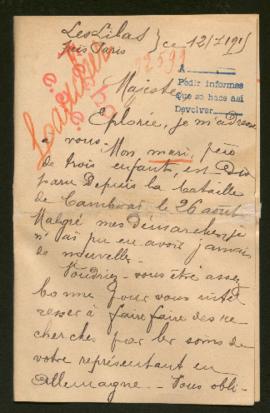 Les Lilas } ce 12/7 1915
près Paris
A
Pedir informes
Que se hace así
Devolver
Majesté
Eplorée, je m'adresse
a vous. Mon mari, père
de trois enfant, est Dis
paru Depuis la bataille
de Cambrai le 26 août
Malgré mes démarches, je
n'ai pu en avoir jamais
de nouvelle.
Voudriez-vous être assez
bonne pour vous inté
resser à faire faire des re
cherches par les soins de
votre représentant en
Allemagne. Vous obli-